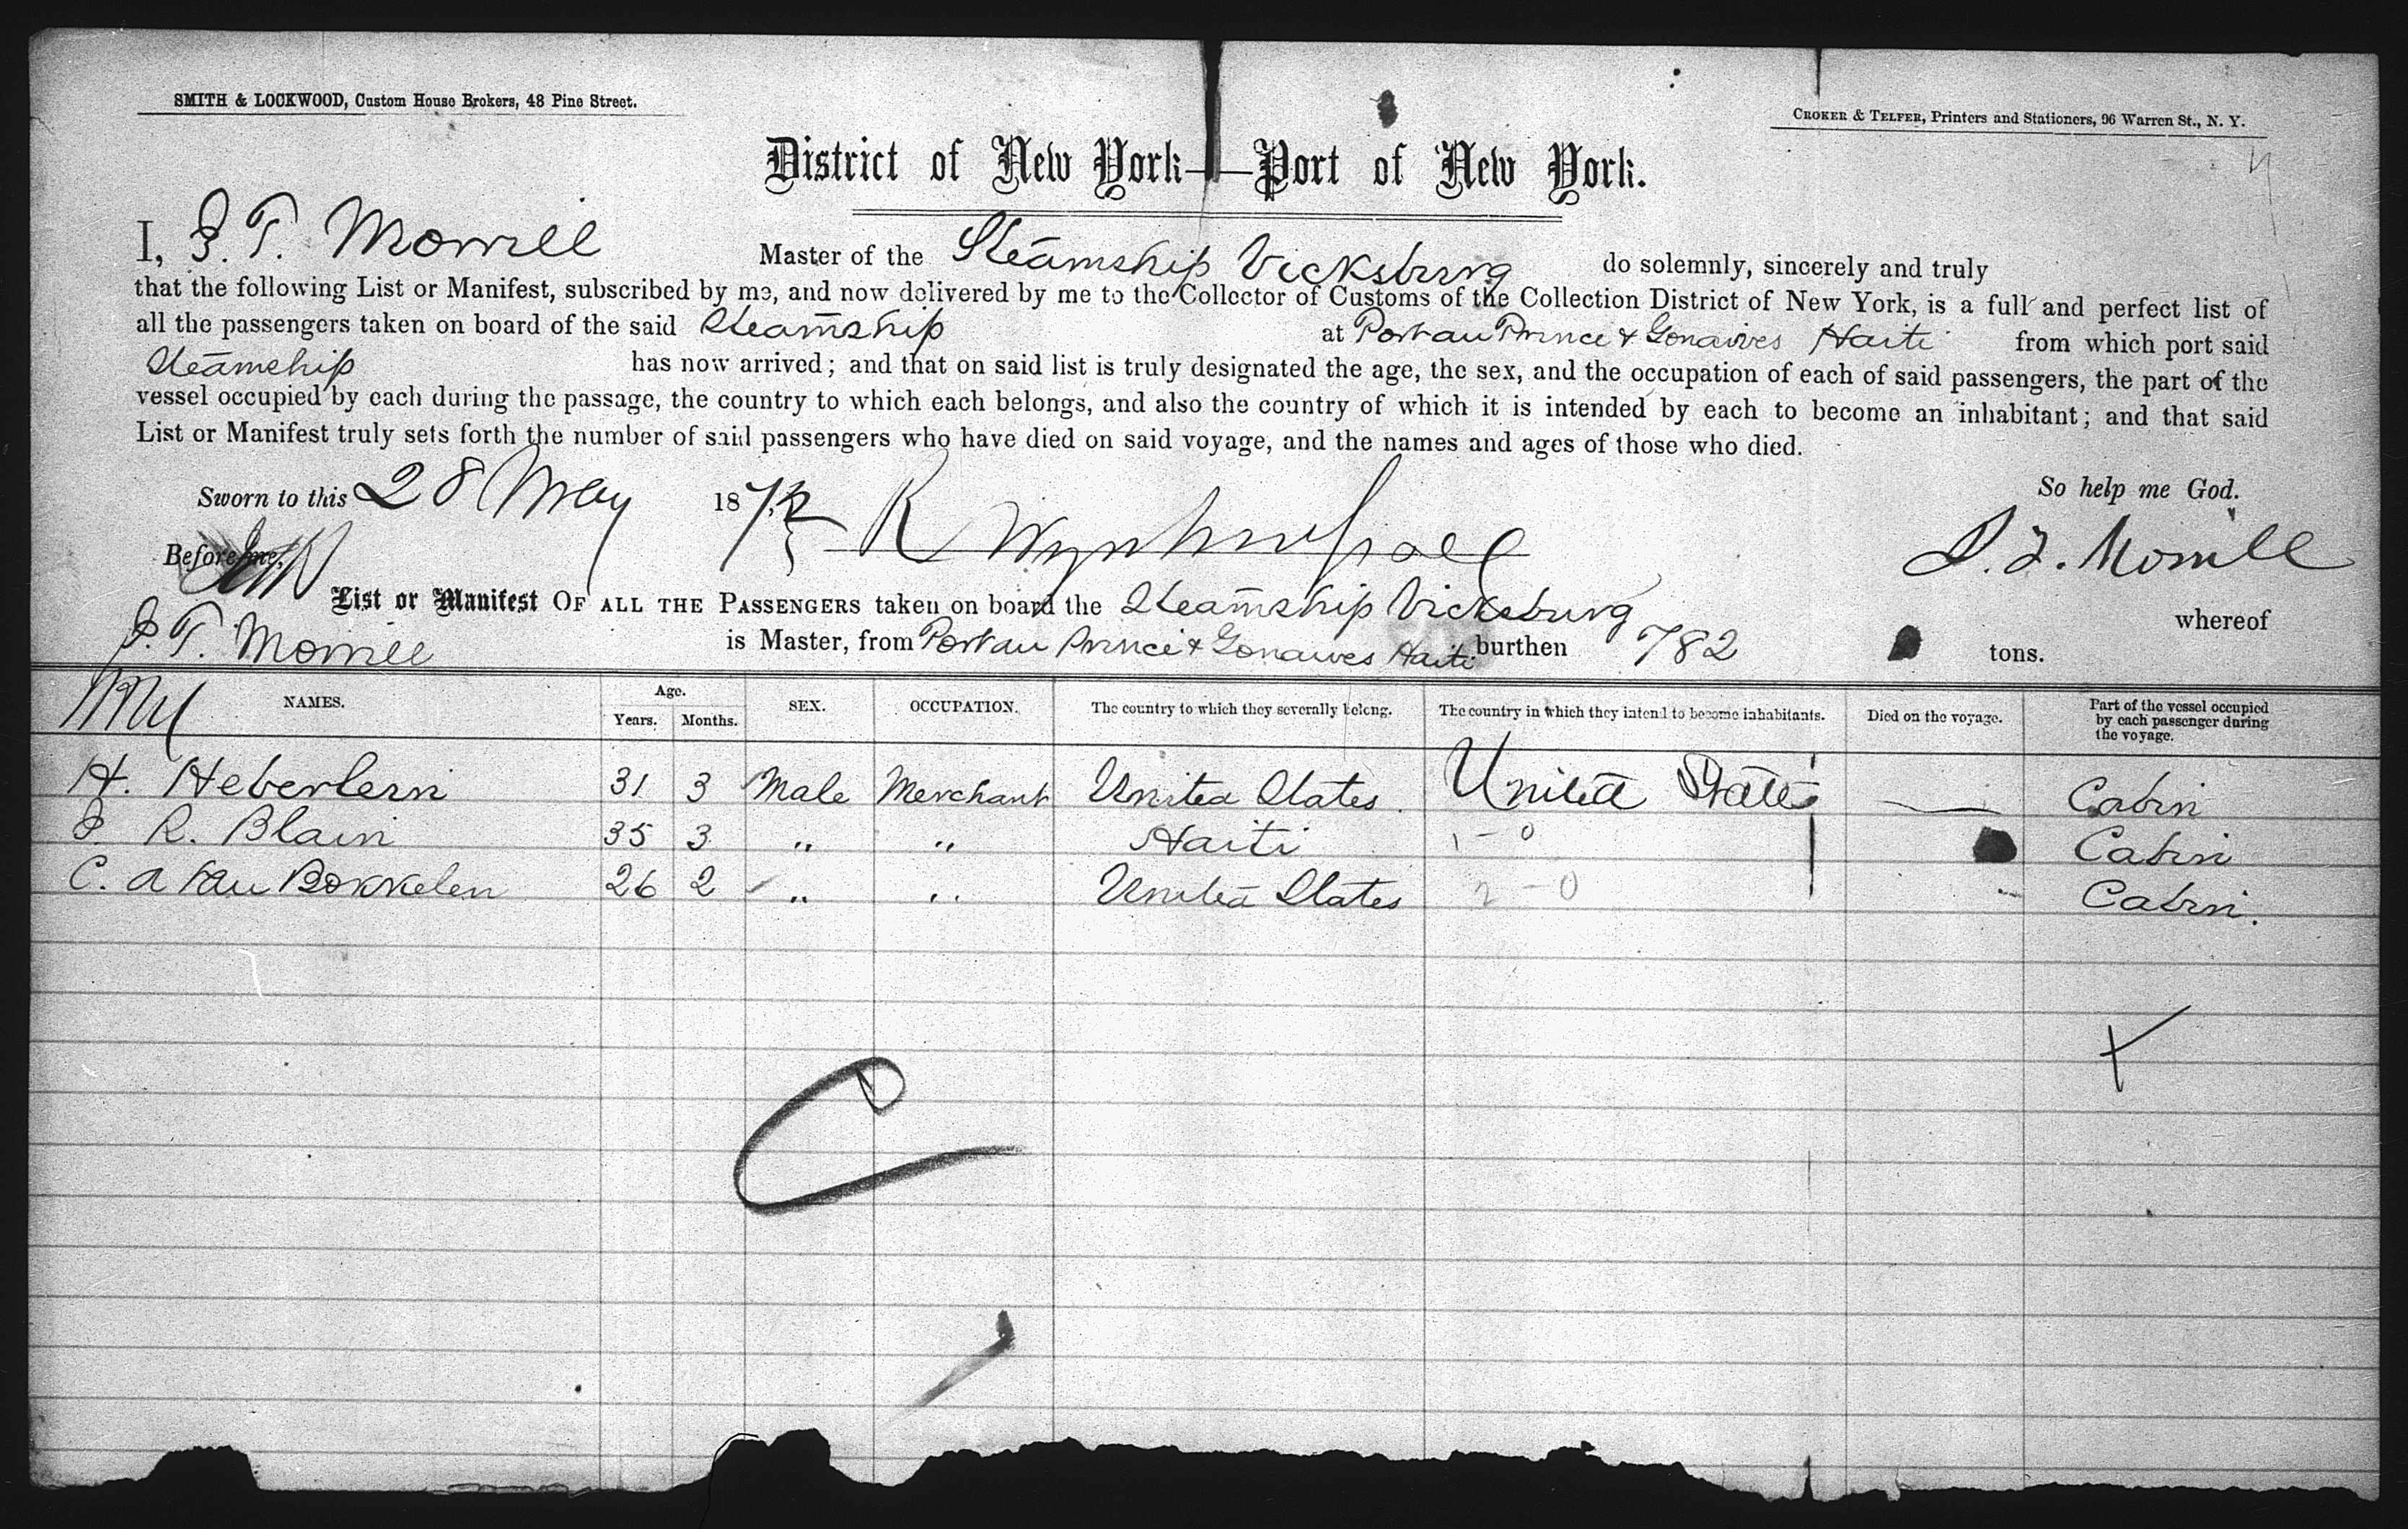 SMITH & LOCKWOOD, Custom House Brokers, 48 Pine Street.
CROKER & TELFER, Printers and Stationers, 96 Warren St., N. Y.
District of New York—Port of New York.
I, J. T. Morrill Master of the Steamship Vicksburg do solemnly, sincerely and truly
that the following List or Manifest, subscribed by me, and now delivered by me to the Collector of Customs of the Collection District of New York, is a full and perfect list of
all the passengers taken on board of the said Steamship at Port au Prince & Gonaives Haiti from which port said
Steamship has now arrived; and that on said list is truly designated the age, the sex, and the occupation of each of said passengers, the part of the
vessel occupied by each during the passage, the country to which each belongs, and also the country of which it is intended by each to become an inhabitant; and that said
List or Manifest truly sets forth the number of said passengers who have died on said voyage, and the names and ages of those who died.
Sworn to this 28 May 187 So help me God.
Before me, J. T. Morrill
List or Manifest OF ALL THE PASSENGERS taken on board the Steamship Vicksburg whereof
J. T. Morrill is Master, from Port au Prince & Gonaives Haiti burthen 782 tons.
NAMES. Age. Years. Months. SEX. OCCUPATION. The country to which they severally belong. The country in which they intend to become inhabitants. Died on the voyage. Part of the vessel occupied by each passenger during the voyage.
H. Heberlein 31 3 Male Merchant United States United States — Cabin
J. R. Blain 35 3 " " Haiti 1 - 0 Cabin
C. A Van Bokkelen 26 2 " " United States 2 - 0 Cabin.
C